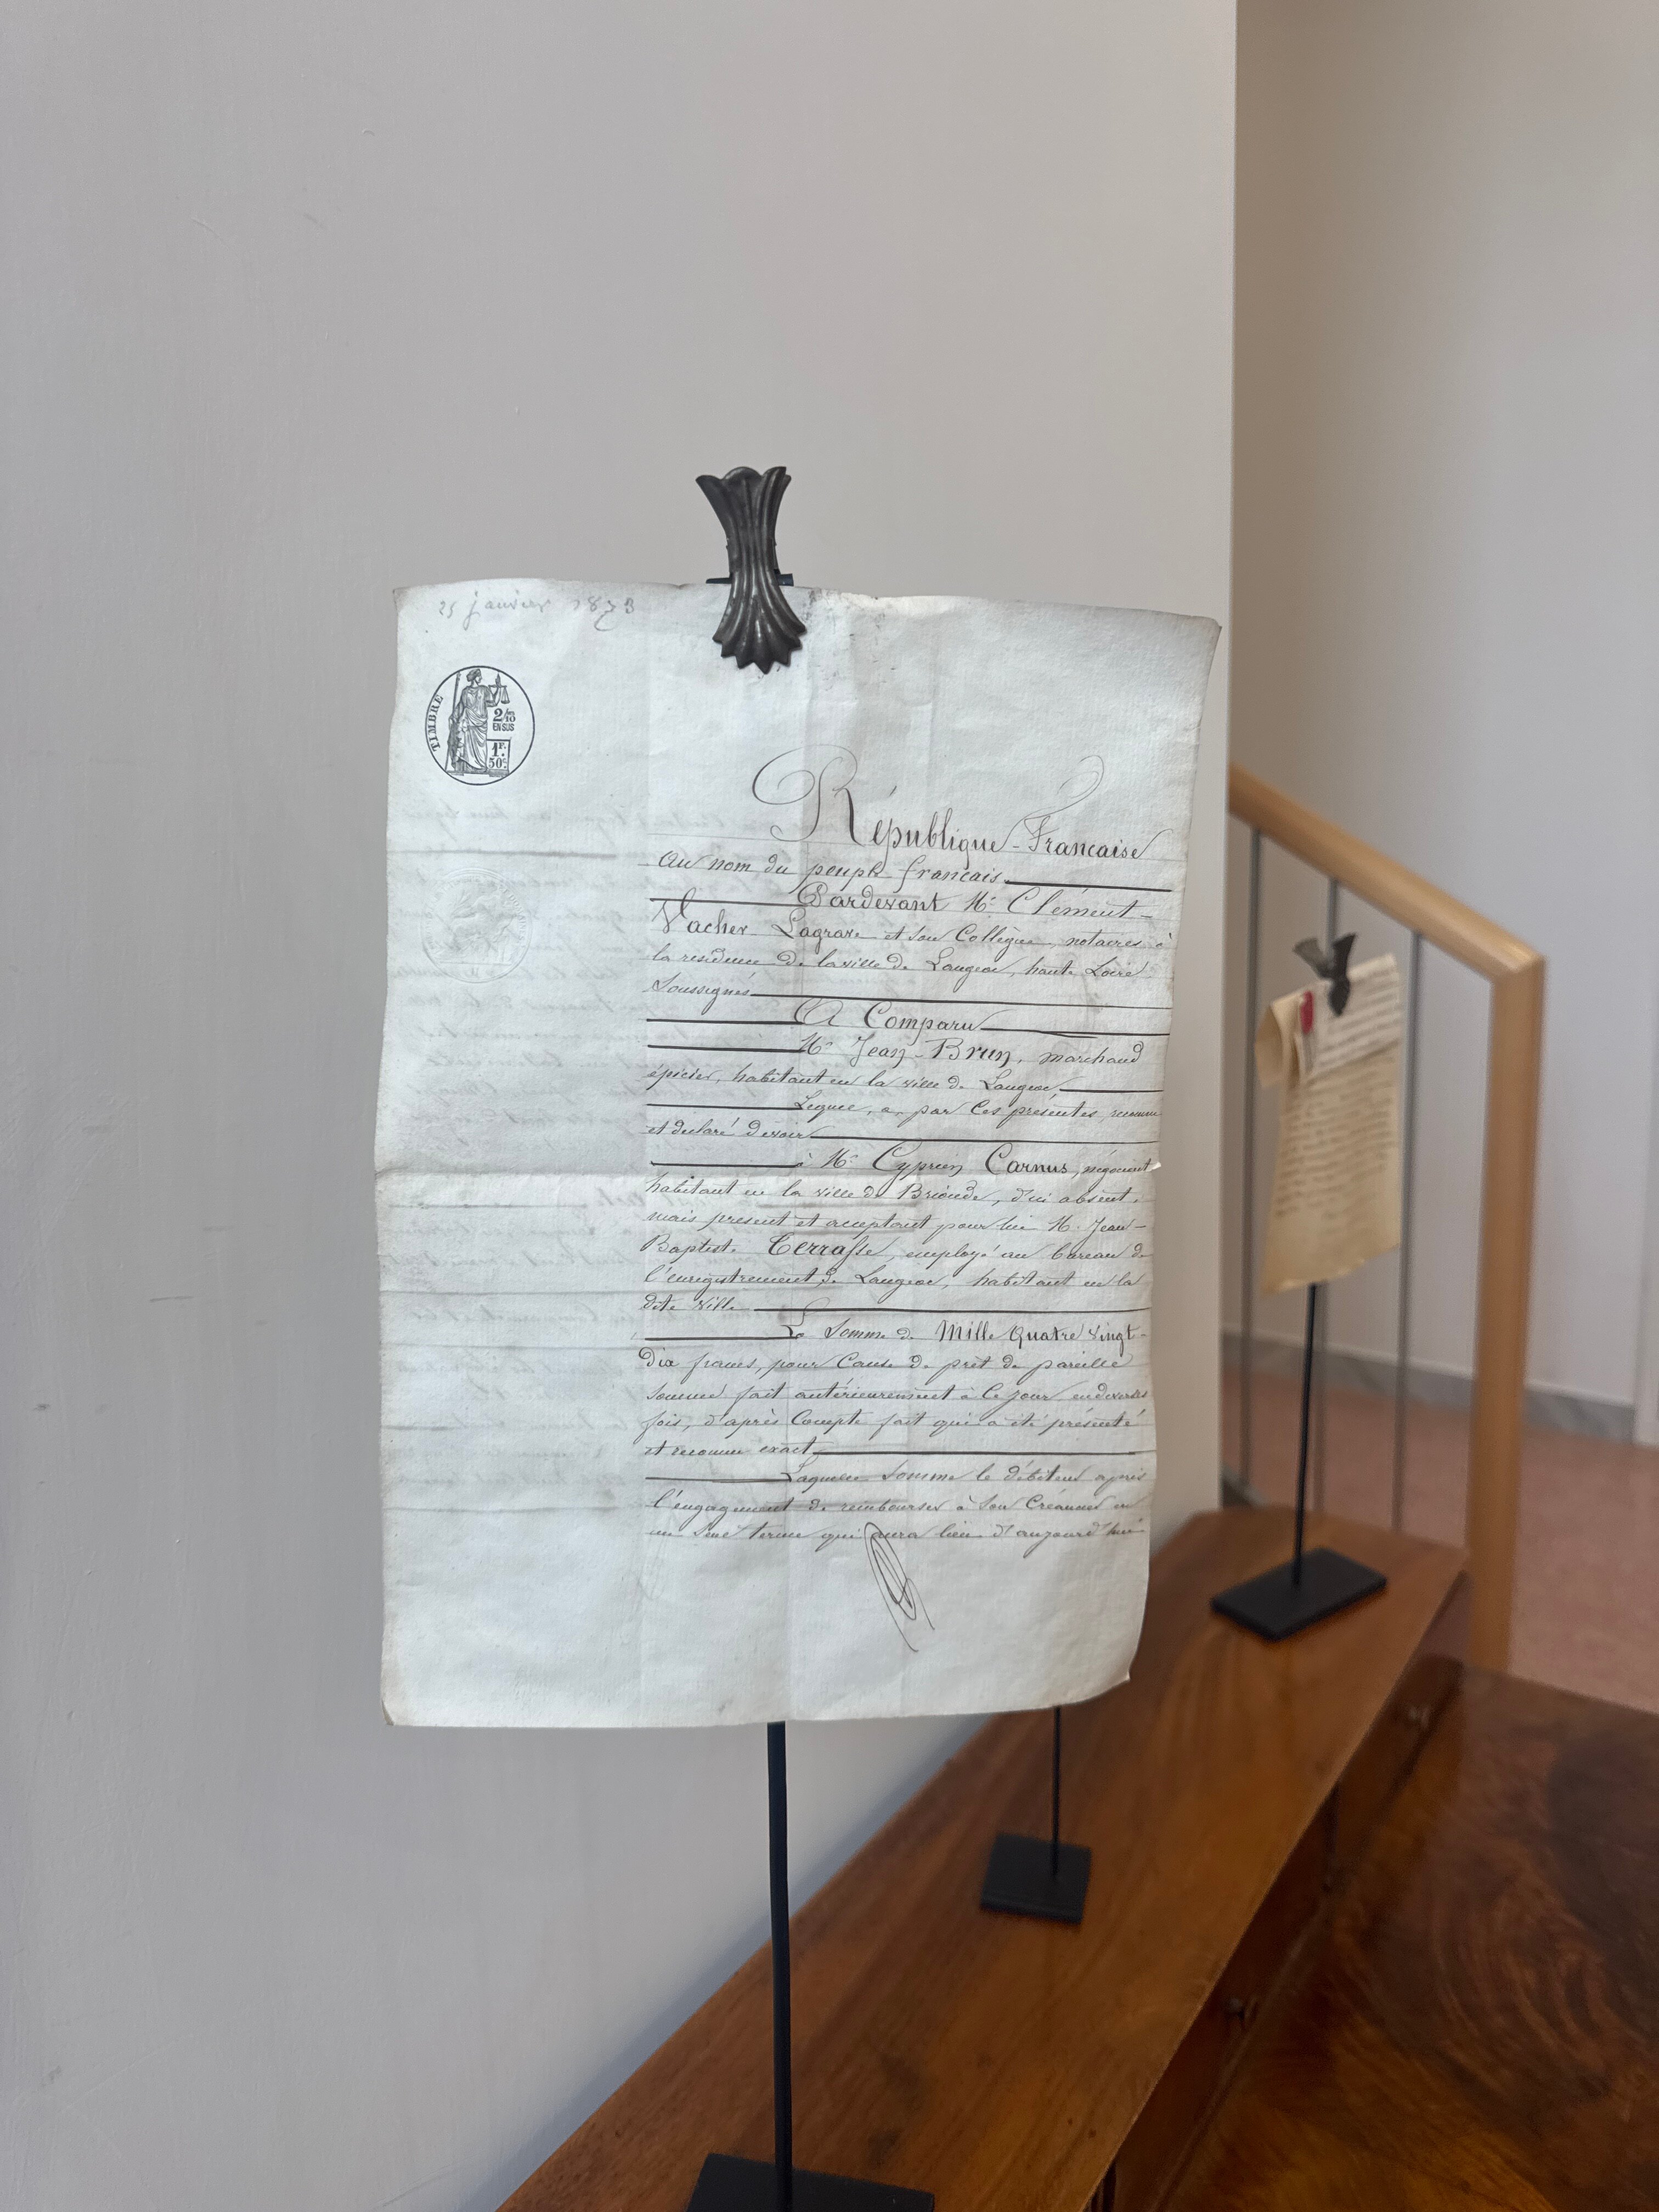 25 janvier 1873
TIMBRE
2/10
EN SUS
1F.
50c.
République-Francaise
Au nom du peuple francais.
Pardevant Me. Clément-
Vacher Lagrave et son Collègue, notaires à
la residence de la ville de Langeac, haute Loire
Soussignés
A Comparu
Mr. Jean-Brun, marchand
épicier, habitant en la ville de Langeac,
Lequel, a, par ces présentes, reconnu
et declaré devoir
à Mr. Cyprien Carnus, négociant
habitant en la ville de Brioude, d'ici absent,
mais present et acceptant pour lui M. Jean-
Baptiste Terrasse, employé au bureau de
l'enregistrement de Langeac, habitant en la
dite ville
La Somme de Mille Quatre Vingt-
Dix francs, pour Cause de prêt de pareille
somme fait antérieurement à ce jour, en diverses
fois, d'après Compte fait qui a été présenté
et reconnu exact
Laquelle Somme le débiteur a pris
l'engagement de rembourser à Son Créancier en
un seul terme qui aura lieu d'aujourd'hui